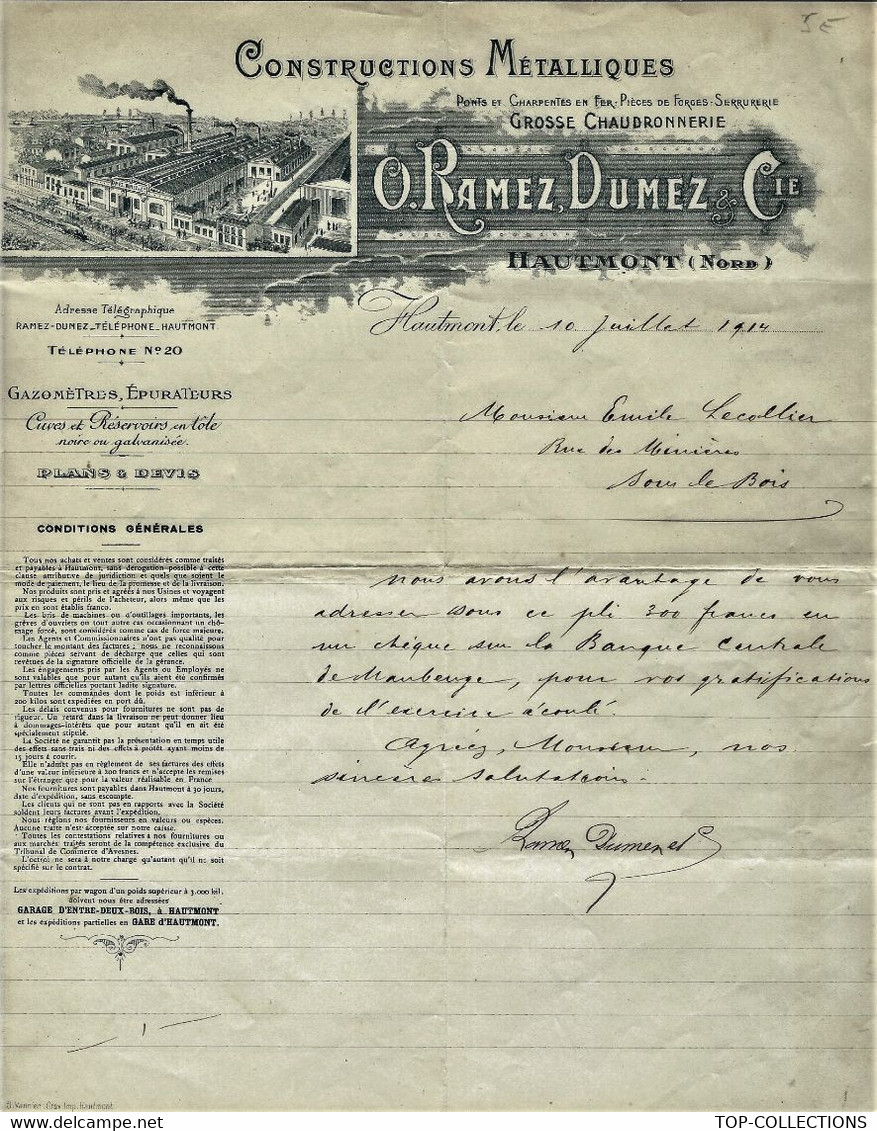 5E
CONSTRUCTIONS MÉTALLIQUES
PONTS ET CHARPENTES EN FER-PIÈCES DE FORGES-SERRURERIE
GROSSE CHAUDRONNERIE
O. RAMEZ, DUMEZ & CIE
HAUTMONT (NORD)
Adresse Télégraphique
RAMEZ-DUMEZ_TÉLÉPHONE_HAUTMONT
TÉLÉPHONE No 20
GAZOMÈTRES, ÉPURATEURS
Cuves et Réservoirs en tôle
noire ou galvanisée.
PLANS & DEVIS
CONDITIONS GÉNÉRALES
Tous nos achats et ventes sont considérés comme traités
et payables à Hautmont, sans dérogation possible à cette
clause attributive de juridiction et quels que soient le
mode de paiement, le lieu de la promesse et de la livraison.
Nos produits sont pris et agréés à nos Usines et voyagent
aux risques et périls de l'acheteur, alors même que les
prix en sont établis franco.
Les bris de machines ou d'outillages importants, les
grèves d'ouvriers ou tout autre cas occasionnant un chô-
mage forcé, sont considérés comme cas de force majeure.
Les Agents et Commissionnaires n'ont pas qualité pour
toucher le montant des factures ; nous ne reconnaissons
comme pièces servant de décharge que celles qui sont
revêtues de la signature officielle de la gérance.
Les engagements pris par les Agents ou Employés ne
sont valables que pour autant qu'ils aient été confirmés
par lettres officielles portant ladite signature.
Toutes les commandes dont le poids est inférieur à
200 kilos sont expédiées en port dû.
Les délais convenus pour fournitures ne sont pas de
rigueur. Un retard dans la livraison ne peut donner lieu
à dommages-intérêts que pour autant qu'il en ait été
spécialement stipulé.
La Société ne garantit pas la présentation en temps utile
des effets sans frais ni des effets à protêt ayant moins de
15 jours à courir.
Elle n'admet pas en règlement de ses factures des effets
d'une valeur inférieure à 200 francs et n'accepte les remises
sur l'étranger que pour la valeur réalisable en France
Nos fournitures sont payables dans Hautmont à 30 jours,
date d'expédition, sans escompte.
Les clients qui ne sont pas en rapports avec la Société
soldent leurs factures avant l'expédition.
Nous réglons nos fournisseurs en valeurs ou espèces.
Aucune traite n'est acceptée sur notre caisse.
Toutes les contestations relatives à nos fournitures ou
aux marchés traités seront de la compétence exclusive du
Tribunal de Commerce d'Avesnes.
L'octroi ne sera à notre charge qu'autant qu'il ne soit
spécifié sur le contrat.
Les expéditions par wagon d'un poids supérieur à 3.000 kil.
doivent nous être adressées
GARAGE D'ENTRE-DEUX-BOIS, à HAUTMONT
et les expéditions partielles en GARE d'HAUTMONT.
Hautmont, le 10 Juillet 1914
Monsieur Emile Lecollier
Rue des Minières
Sous le Bois
nous avons l'avantage de vous
adresser sous ce pli 300 francs en
un chèque sur la Banque Centrale
de Maubeuge, pour vos gratifications
de l'exercice écoulé
Agréez, Monsieur, nos
sincères salutations.
Ramez Dumez et Cie
1
TOP-COLLECTIONS